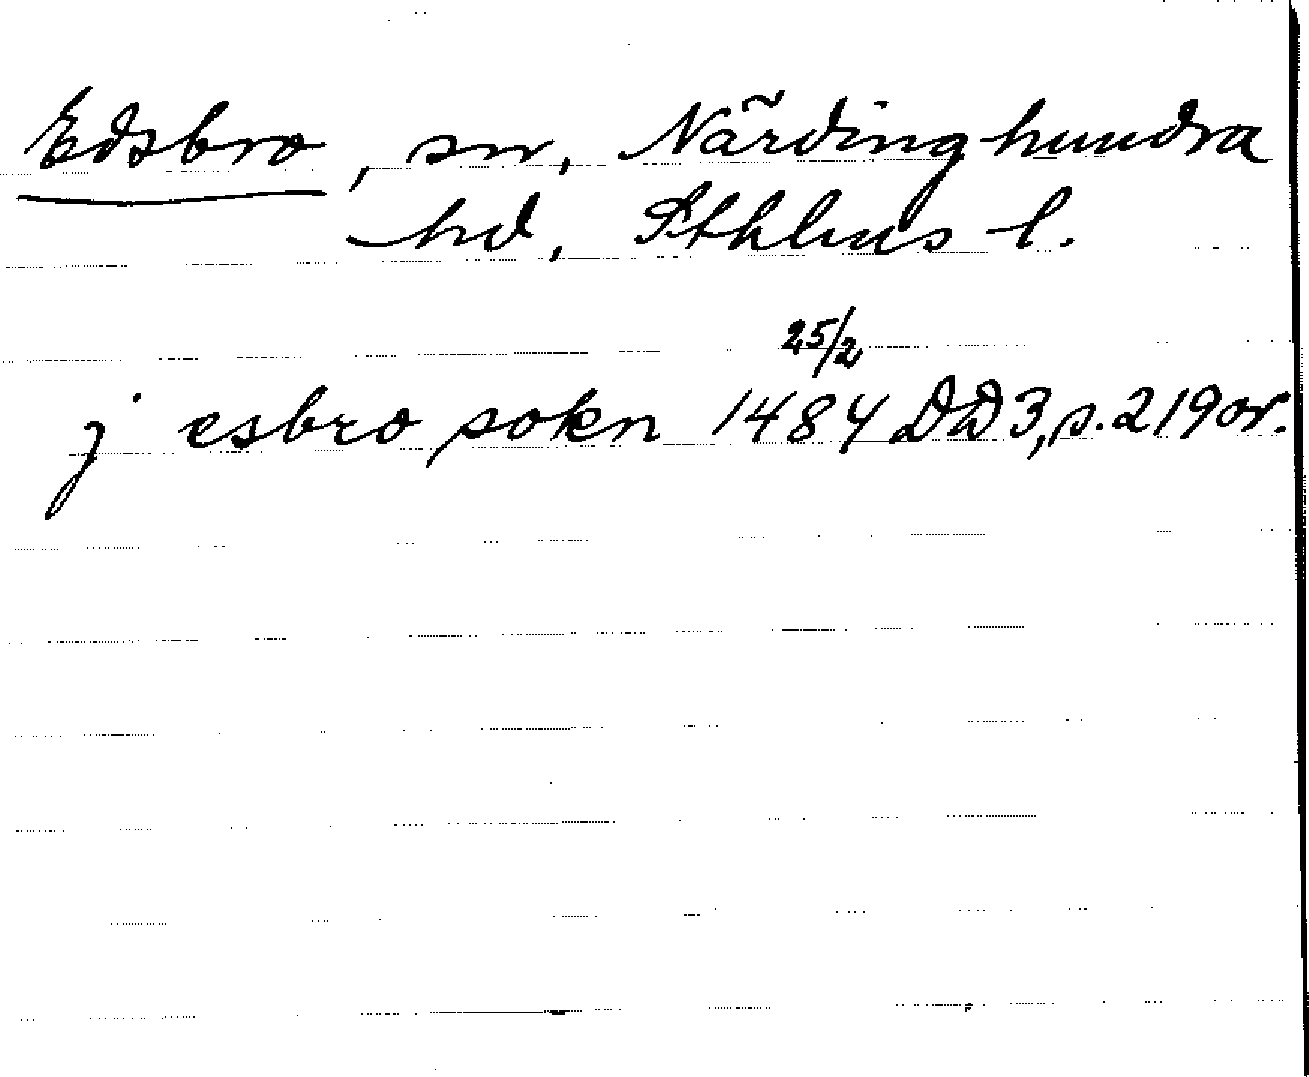 Edsbro, sn, Närdinghundra
hd, Sthlms l.
25/2
j esbro sokn 1484 DD3, s. 219 or.